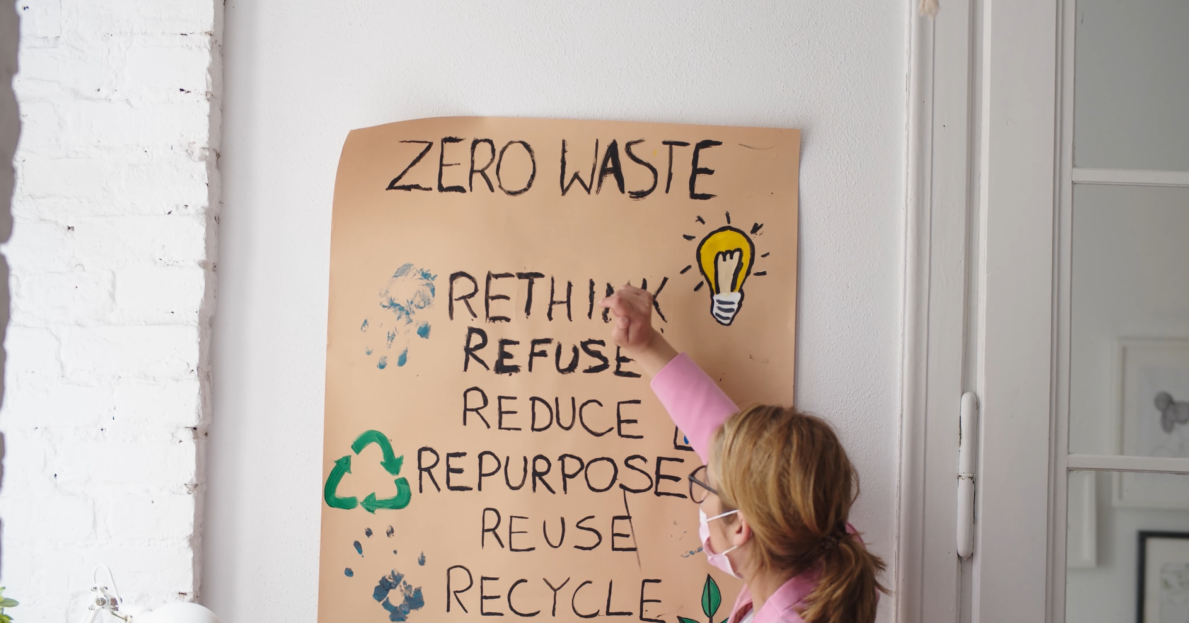 ZERO WASTE
RETHINK
REFUSE
REDUCE
REPURPOSE
REUSE
RECYCLE